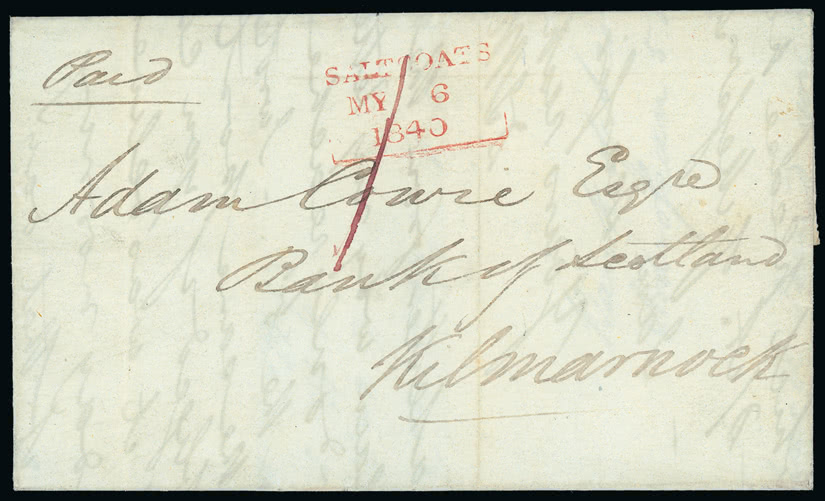 Paid
SALTCOATS
MY 6
1840
1
Adam Cowie Esqre
Bank of Scotland
Kilmarnock